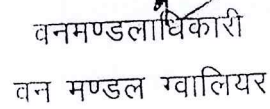 वनमण्डलाधिकारी
वन मण्डल ग्वालियर